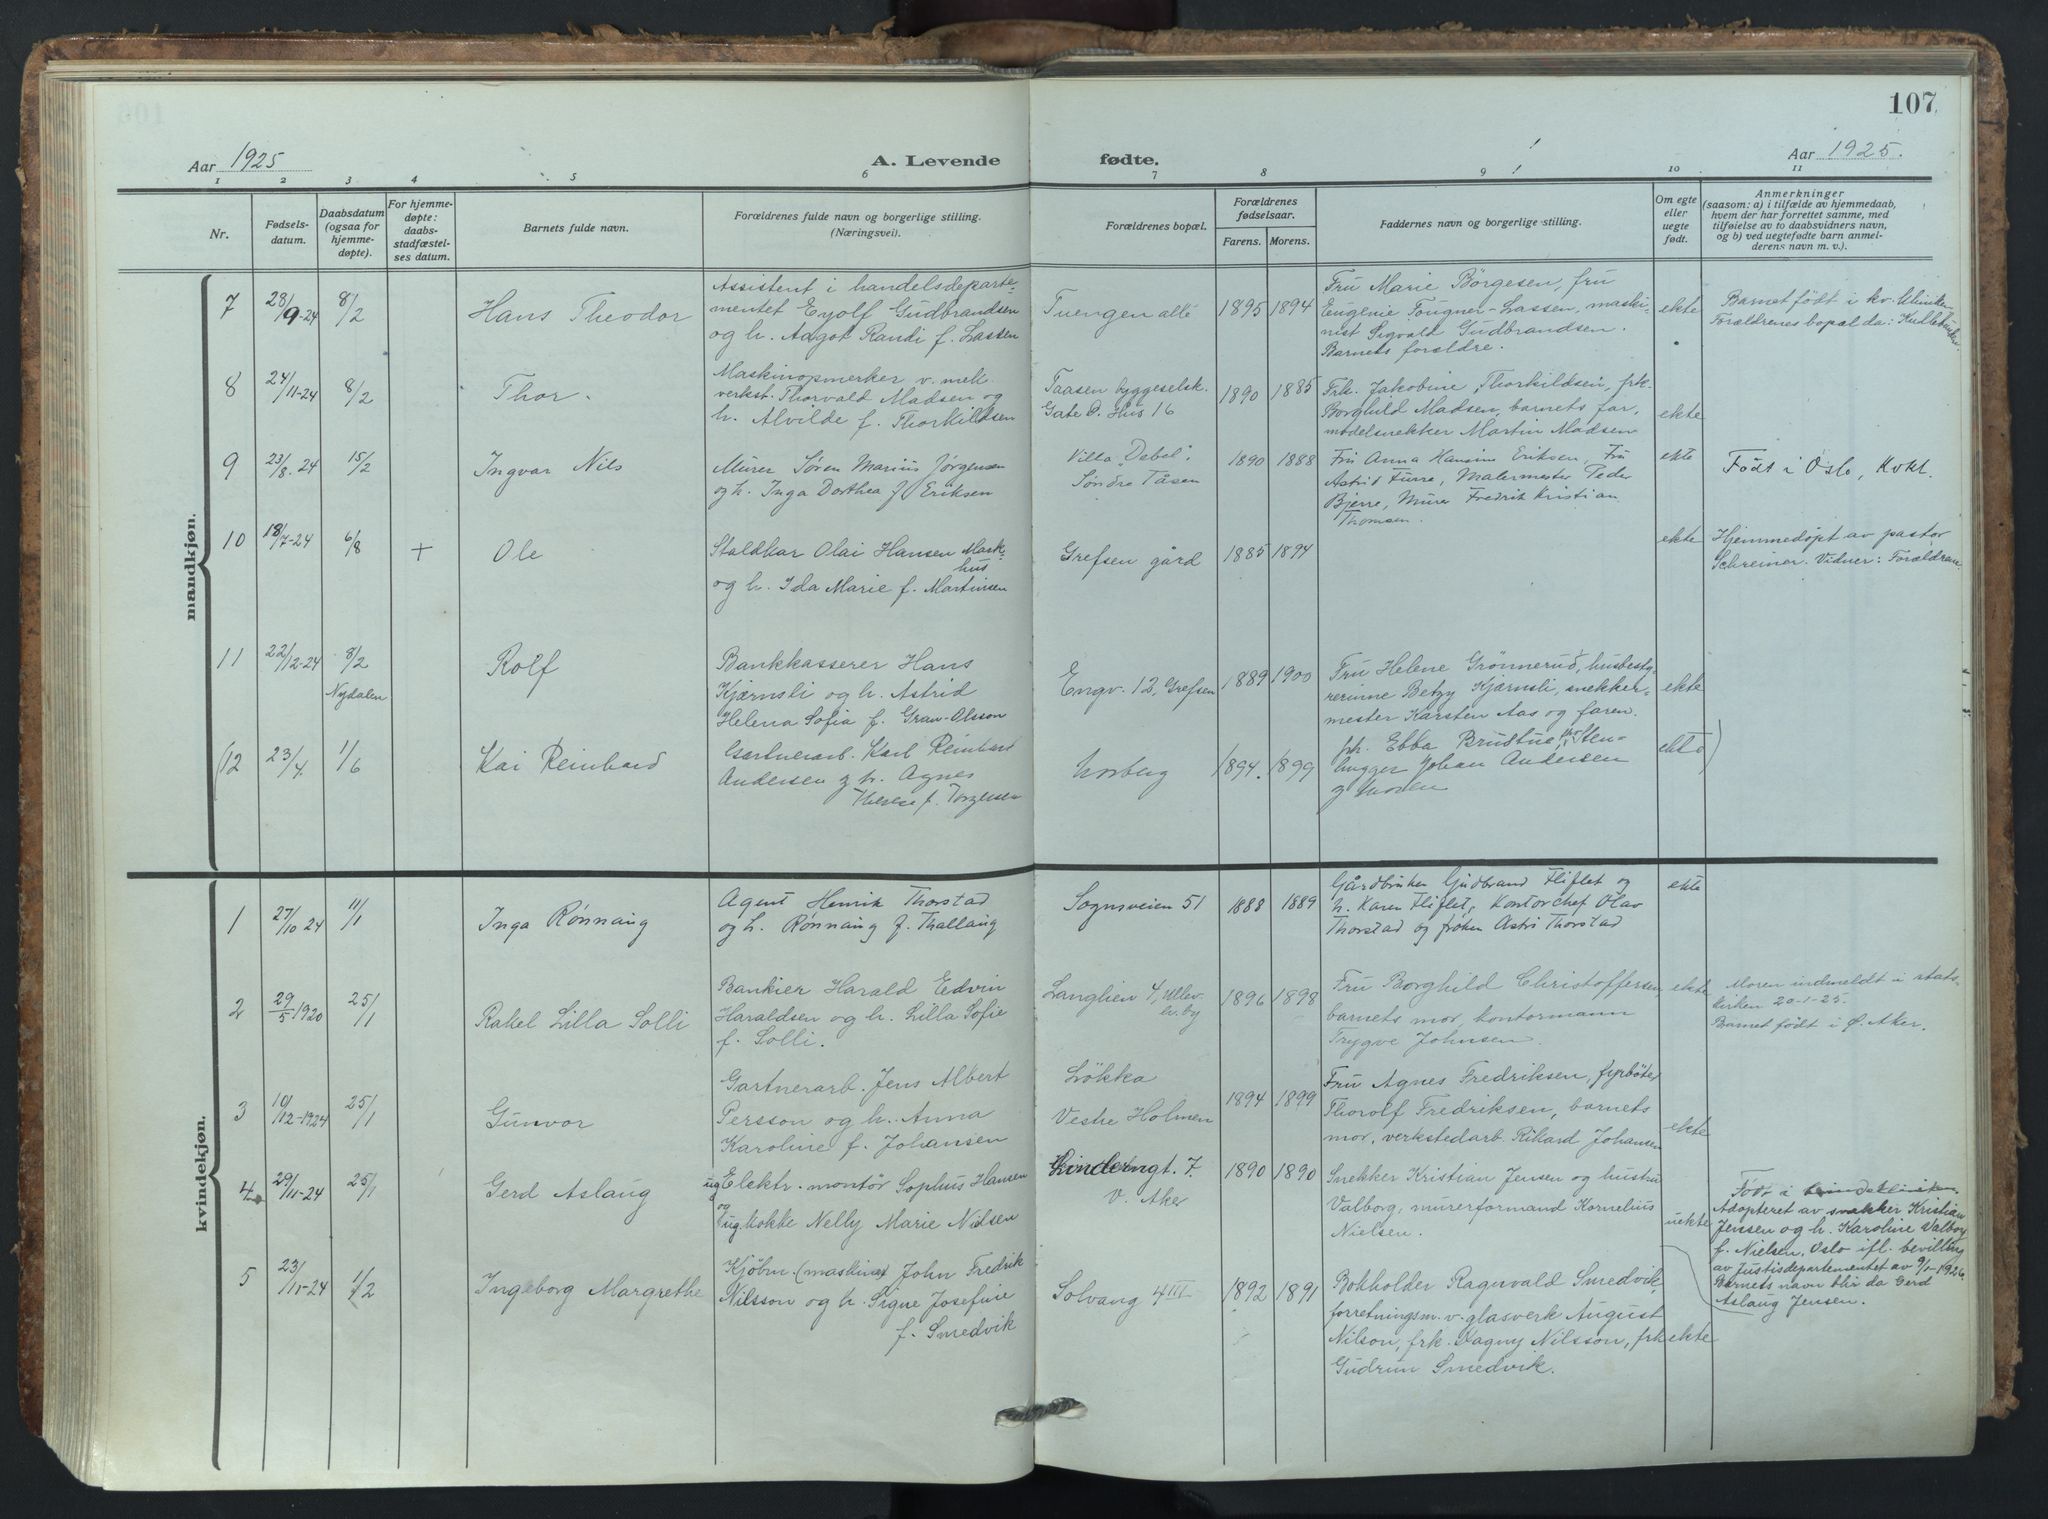 107
Aar 1925
A. Levende
fødte.
Aar 1925.
1 2 3 4 5 6 7 8 9 10 11
Nr.
Fødsels-
datum.
Daabsdatum
(ogsaa for
hjemme-
døpte).
For hjemme-
døpte:
daabs-
stadfæstel-
ses datum.
Barnets fulde navn.
Forældrenes fulde navn og borgerlige stilling.
(Næringsvei).
Forældrenes bopæl.
Forældrenes
fødselsaar.
Farens. Morens.
Faddernes navn og borgerlige stilling.
Om egte
eller
uegte
født.
Anmerkninger
(saasom: a) i tilfælde av hjemmedaab,
hvem der har forrettet samme, med
tilføielse av to daabsvidners navn,
og b) ved uegtefødte barn anmel-
derens navn m. v.).
mandkjøn.
7
28/9-24
8/2
Hans Theodor
Assistent i handelsdeparte-
mentet Eyolf Gudbrandsen
og h. Aagot Randi f. Lassen
Tuengen allé
1895 1894
Fru Marie Børgesen, fru
Eugenie Tougner-Lassen, maski-
nist Sigvald Gudbrandsen.
Barnets forældre.
ekte
Barnet født i kv. kliniken
Forældrenes bopæl da:
8
24/11-24
8/2
Thor.
Maskinopmerker v. mek.
verkst. Thorvald Madsen og
h. Alvilde f. Thorkildsen
Taasen byggeselsk.
Gate D. Hus 16
1890 1885
Frk. Jakobine Thorkildsen, frk.
Borghild Madsen, barnets far,
modelsnekker Martin Madsen
ekte
9
23/8-24
15/2
Ingvar Nils
Murer Søren Marius Jørgensen
og h. Inga Dorthea f. Eriksen
Villa "Debel".
Søndre Tåsen
1890 1888
Fru Anna Hansine Eriksen, Fru
Astrid Furre, Malermester Peder
Bjerre, Murer Fredrik Kristian
Thomsen.
ekte
Født i Oslo, Kvkl.
10
18/7-24
6/8
+
Ole
Staldkar Olai Hansen
og h. Ida Marie f. Martinsen
Grefsen gård
1885 1894
ekte
Hjemmedøpt av pastor
Schreiner. Vidner: Forældrene
11
22/12-24
8/2
Nydalen
Rolf
Bankkasserer Hans
Kjærnsli og h. Astrid
Helena Sofia f. Graw-Olsson
Engv. 12, Grefsen
1889 1900
Fru Helene Grønnerud, husbesty-
rerinne Betzy Kjærnsli, snekker-
mester Karsten Aas og faren.
ekte
(12
23/4.
1/6
Kai Reinhard
Gartnerarb. Karl Reinhard
Andersen og h. Agnes
Therese f. Torgersen
Norberg
1894. 1899
frk. Ebba Brustue, Sten-
hugger Johan Andersen
og moren
ekte
)
kvindekjøn.
1
27/10 24
11/1
Inga Rønnaug
Agent Henrik Thorstad
og h. Rønnaug f. Thallaug
Sognsveien 51
1888 1889
Gårdbruker Gudbrand Fliflet og
h. Karen Fliflet, Kontorchef Olav
Thorstad og frøken Astri Thorstad
ekte
2
29/5 1920
25/1
Rakel Lilla Solli
Bankier Harald Edvin
Haraldsen og h. Lilla Sofie
f. Solli.
Langlien 4, Ullev.
h. by
1896 1898
Fru Borghild Christoffersen,
barnets mor, kontormann
Trygve Johnsen.
ekte
Moren indmeldt i stats-
kirken 20-1-25.
Barnet født i Ø. Aker.
3
10/12-1924
25/1
Gunvor
Gartnerarb. Jens Albert
Persson og h. Anna
Karoline f. Johansen
Løkka
Vestre Holmen
1894 1899
Fru Agnes Fredriksen, fyrbøter
Thorolf Fredriksen, barnets
mor, verkstedarb. Rikard Johansen
ekte
4
29/11-24
25/1
Gerd Aslaug
ug Elektr. montør Sophus Hansen
og
ug kokke Nelly Marie Nielsen
Linderngt. 7
V. Aker
1890 1890
Snekker Kristian Jensen og hustru
Valborg, murerformand Kornelius
Nielsen.
uekte
Født i kvindekliniken.
Adopteret av snekker Kristian
Jensen og h. Karoline Valborg
f. Nielsen, Oslo ifl. bevilling
av Justisdepartementet av 9/1-1926.
Barnets navn blir da Gerd
Aslaug Jensen.
5
23/11-24
1/2
Ingeborg Margrethe
Kjøbm. (maskiner) John Fredrik
Nilsson og h. Signe Josefine
f. Smedvik
Solvang 4 III
1892 1891
Bokholder Ragnvald Smedvik,
forretningsm. v. glasverk August
Nilson, frk. Dagny Nilsson, frk.
Gudrun Smedvik.
ekte